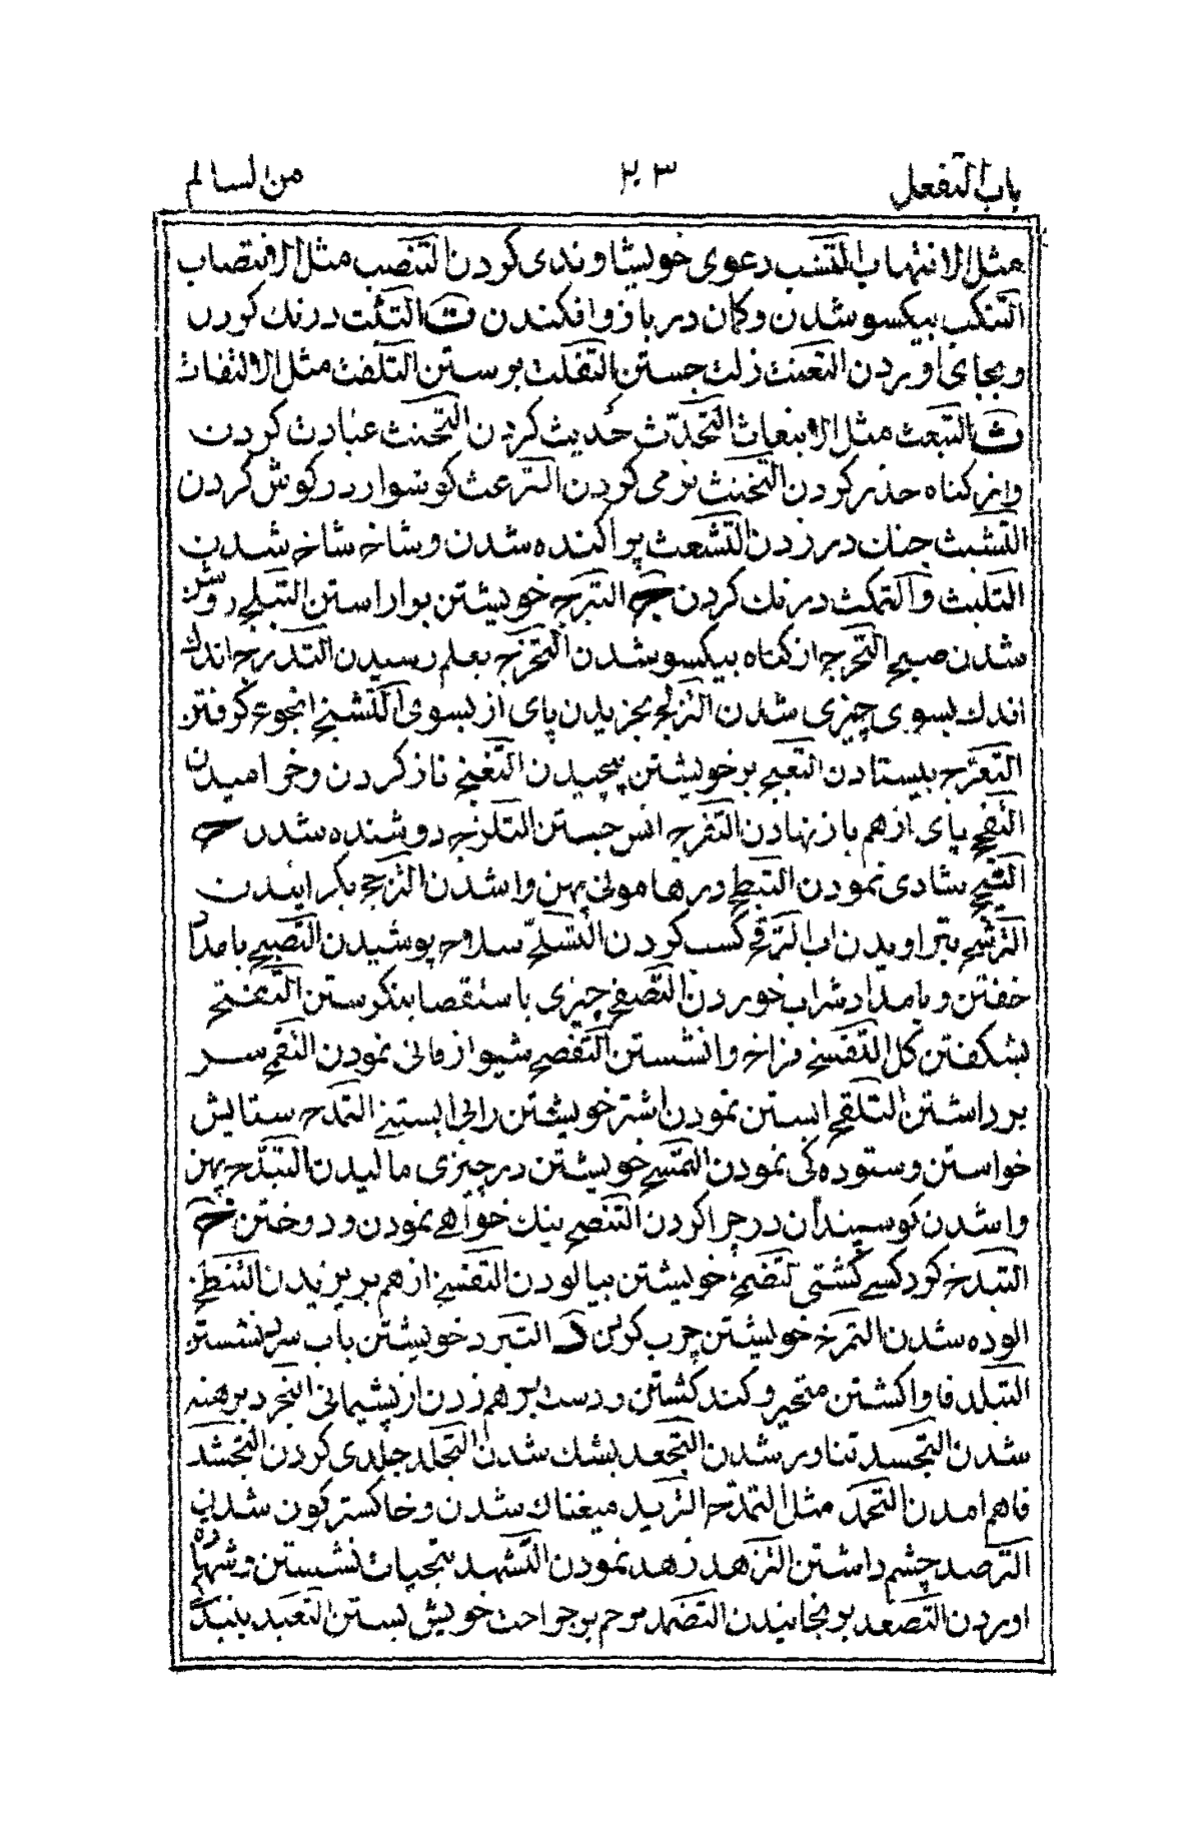 باب التفعل ٢٠٣ من السالم
مثل الانتهاب التنسب دعوی خویشاوندی کردن التنصب مثل الانتصاب
التنکب بیکسو شدن وکمان در بازو افکندن ت التثبت درنك کردن
وبجای اوردن التعنت زلت جستن التفلت برستن التلفت مثل الالتفات
ث التبعث مثل الانبعاث التحدّث حدیث کردن التحنث عبادت کردن
واز کناه حذر کردن التخنث نرمی کردن الترعث کوشوار در کوش کردن
التشبث چنك در زدن التشعث پراکنده شدن وشاخ شاخ شدن
التلبث والتمکث درنك کردن ج التبرج خویشتن براراستن التبلج روشن
شدن صبح التحرج از کناه بیکسو شدن التخرج بعلم رسیدن التدرج اندك
اندك بسوی چیزی شدن التزلج بخزیدن پای از بسوی التشنج انجوغ کرفتن
التعرّج بیستادن التعبج بر خویشتن پیچیدن التغنج ناز کردن وخرامیدن
التفحج پای ازهم باز نهادن التفرج انس جستن التلزج دوشنده شدن ح
التبجح شادی نمودن التبطح در هامونی پهن وا شدن الترجح بکراییدن
الترشح بتراویدن اب الترقح کسب کردن التسلّح سلاح پوشیدن التصبح بامداد
خفتن وبامداد شراب خوردن التصفح چیزی باستقصا بنکرستن التفتح
بشکفتن کل التفسح فراخ وانشستن التفصح شیوا زفانی نمودن التقمح سر
برداشتن التلقح ابستن نمودن اشتر خویشتن را بی ابستنی التمدح ستایش
خواستن وستوده کی نمودن التمسح خویشتن در چیزی مالیدن التندّح پهن
وا شدن کوسپندان در چرا کردن التنصح نیك خواهی نمودن ودوختن خ
التبدخ کردکسی کشتی التضمخ خویشتن بیالودن التفسخ ازهم بریزیدن التنطخ
الوده شدن التمرخ خویشتن چرب کردن د التبرد خویشتن باب سرد شستن
التبلد فاوا کشتن متحیر وکند کشتن ودست برهم زدن از پشیمانی التجرد برهنه
شدن التجسد تناور شدن التجعد بشك شدن التجلد جلدی کردن التحشد
فاهم امدن التحمّد مثل التمدّح التربد میغناك شدن وخاکستر کون شدن
الترصد چشم داشتن التزهد زهد نمودن التشهد بتحیات نشستن وشهادة
اوردن التصعد برنجانیدن التضمد مرهم بر جراحت خویش بستن التعبد ببندکی